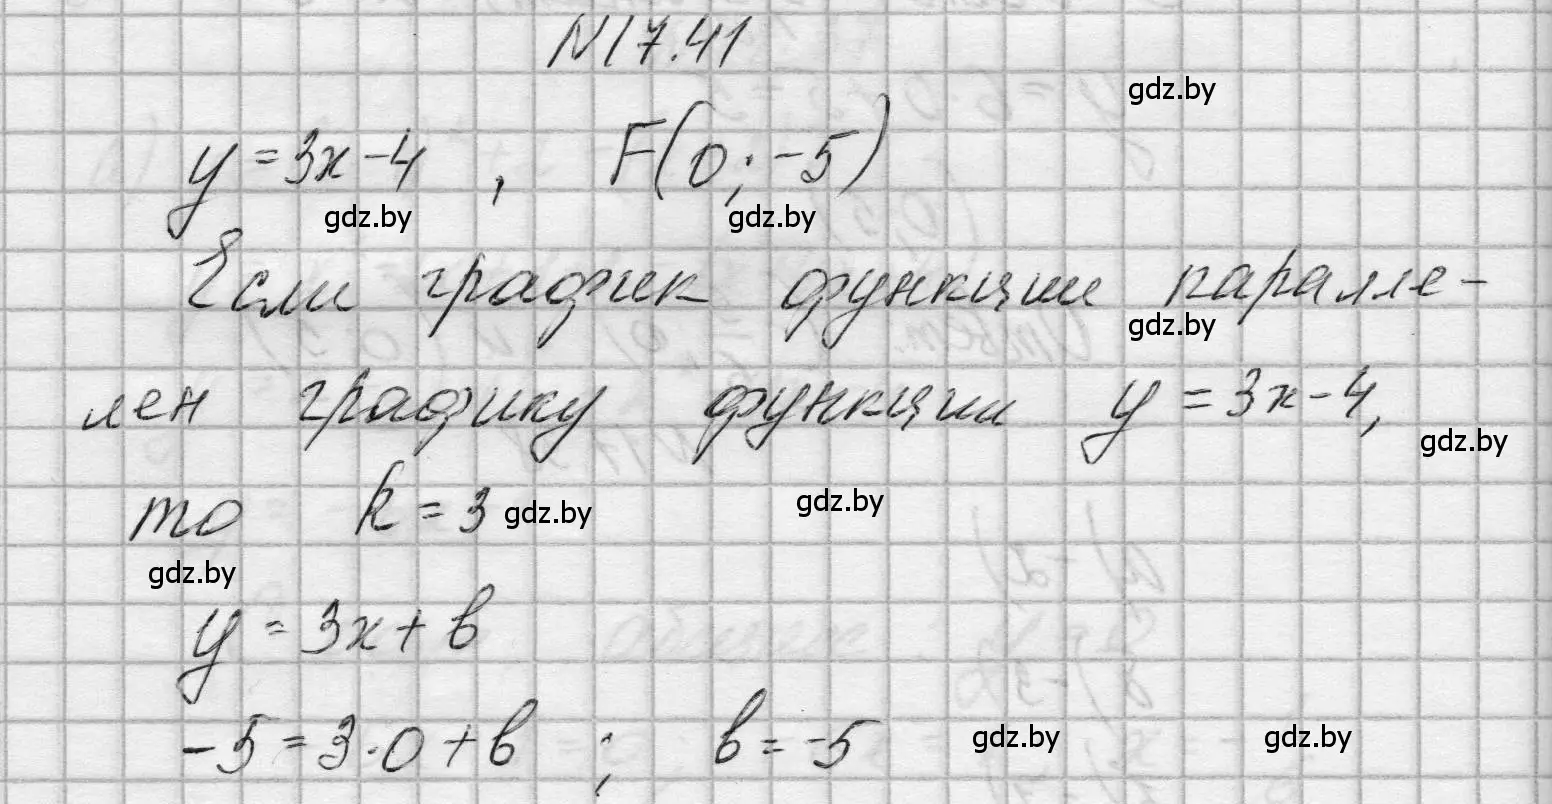 N17.41
gdz.by
y = 3x - 4 , F(0; -5)
gdz.by gdz.by
Если график функции паралле-
gdz.by
лен графику функции y = 3x - 4,
gdz.by
то k = 3 gdz.by gdz.by
gdz.by
y = 3x + b
-5 = 3·0 + b ; b = -5 gdz.by gdz.by